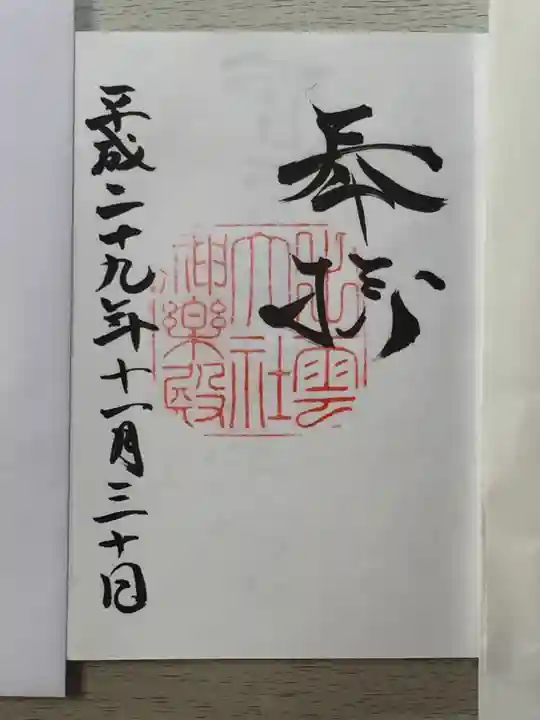 奉拝
出雲
大社
神楽殿
平成二十九年十一月三十日